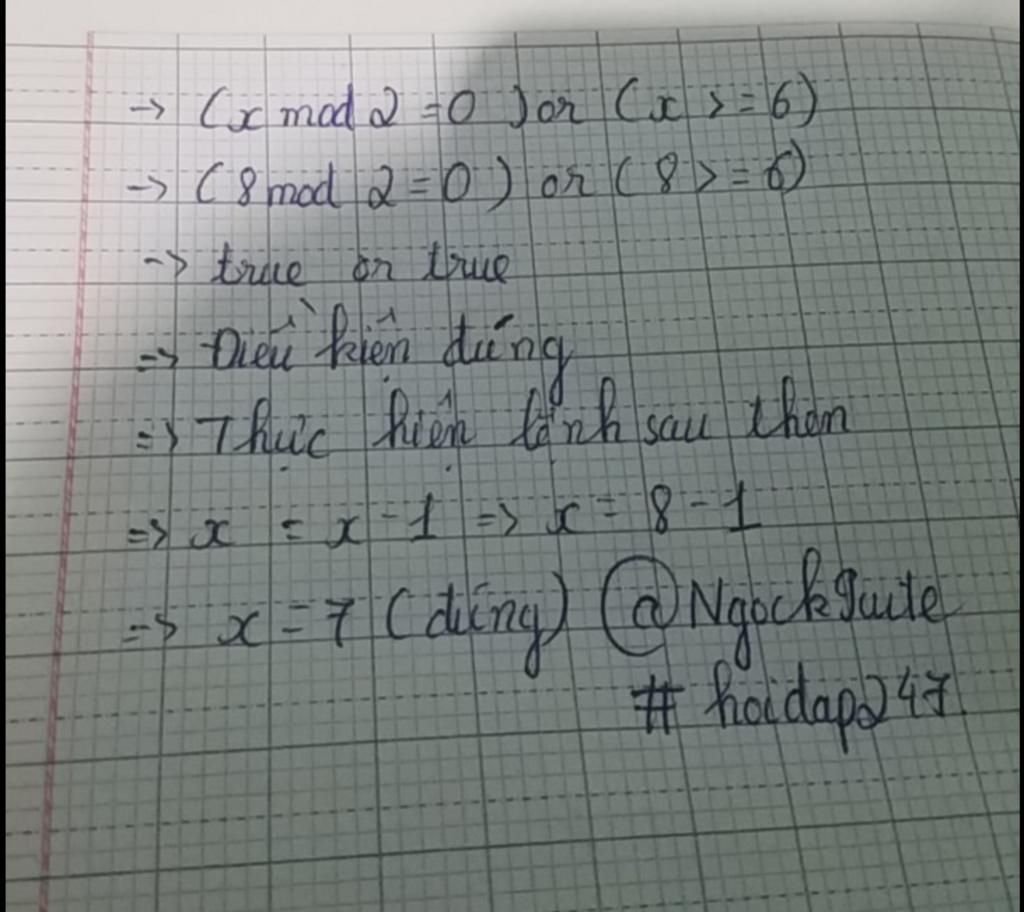 -> (x mod 2 = 0) or (x >= 6)
-> (8 mod 2 = 0) or (8 >= 6)
-> true or true
=> Điều kiện đúng
=> Thực hiện lệnh sau then
=> x = x - 1 => x = 8 - 1
=> x = 7 (đúng) @Ngockguite
# hoidap247.